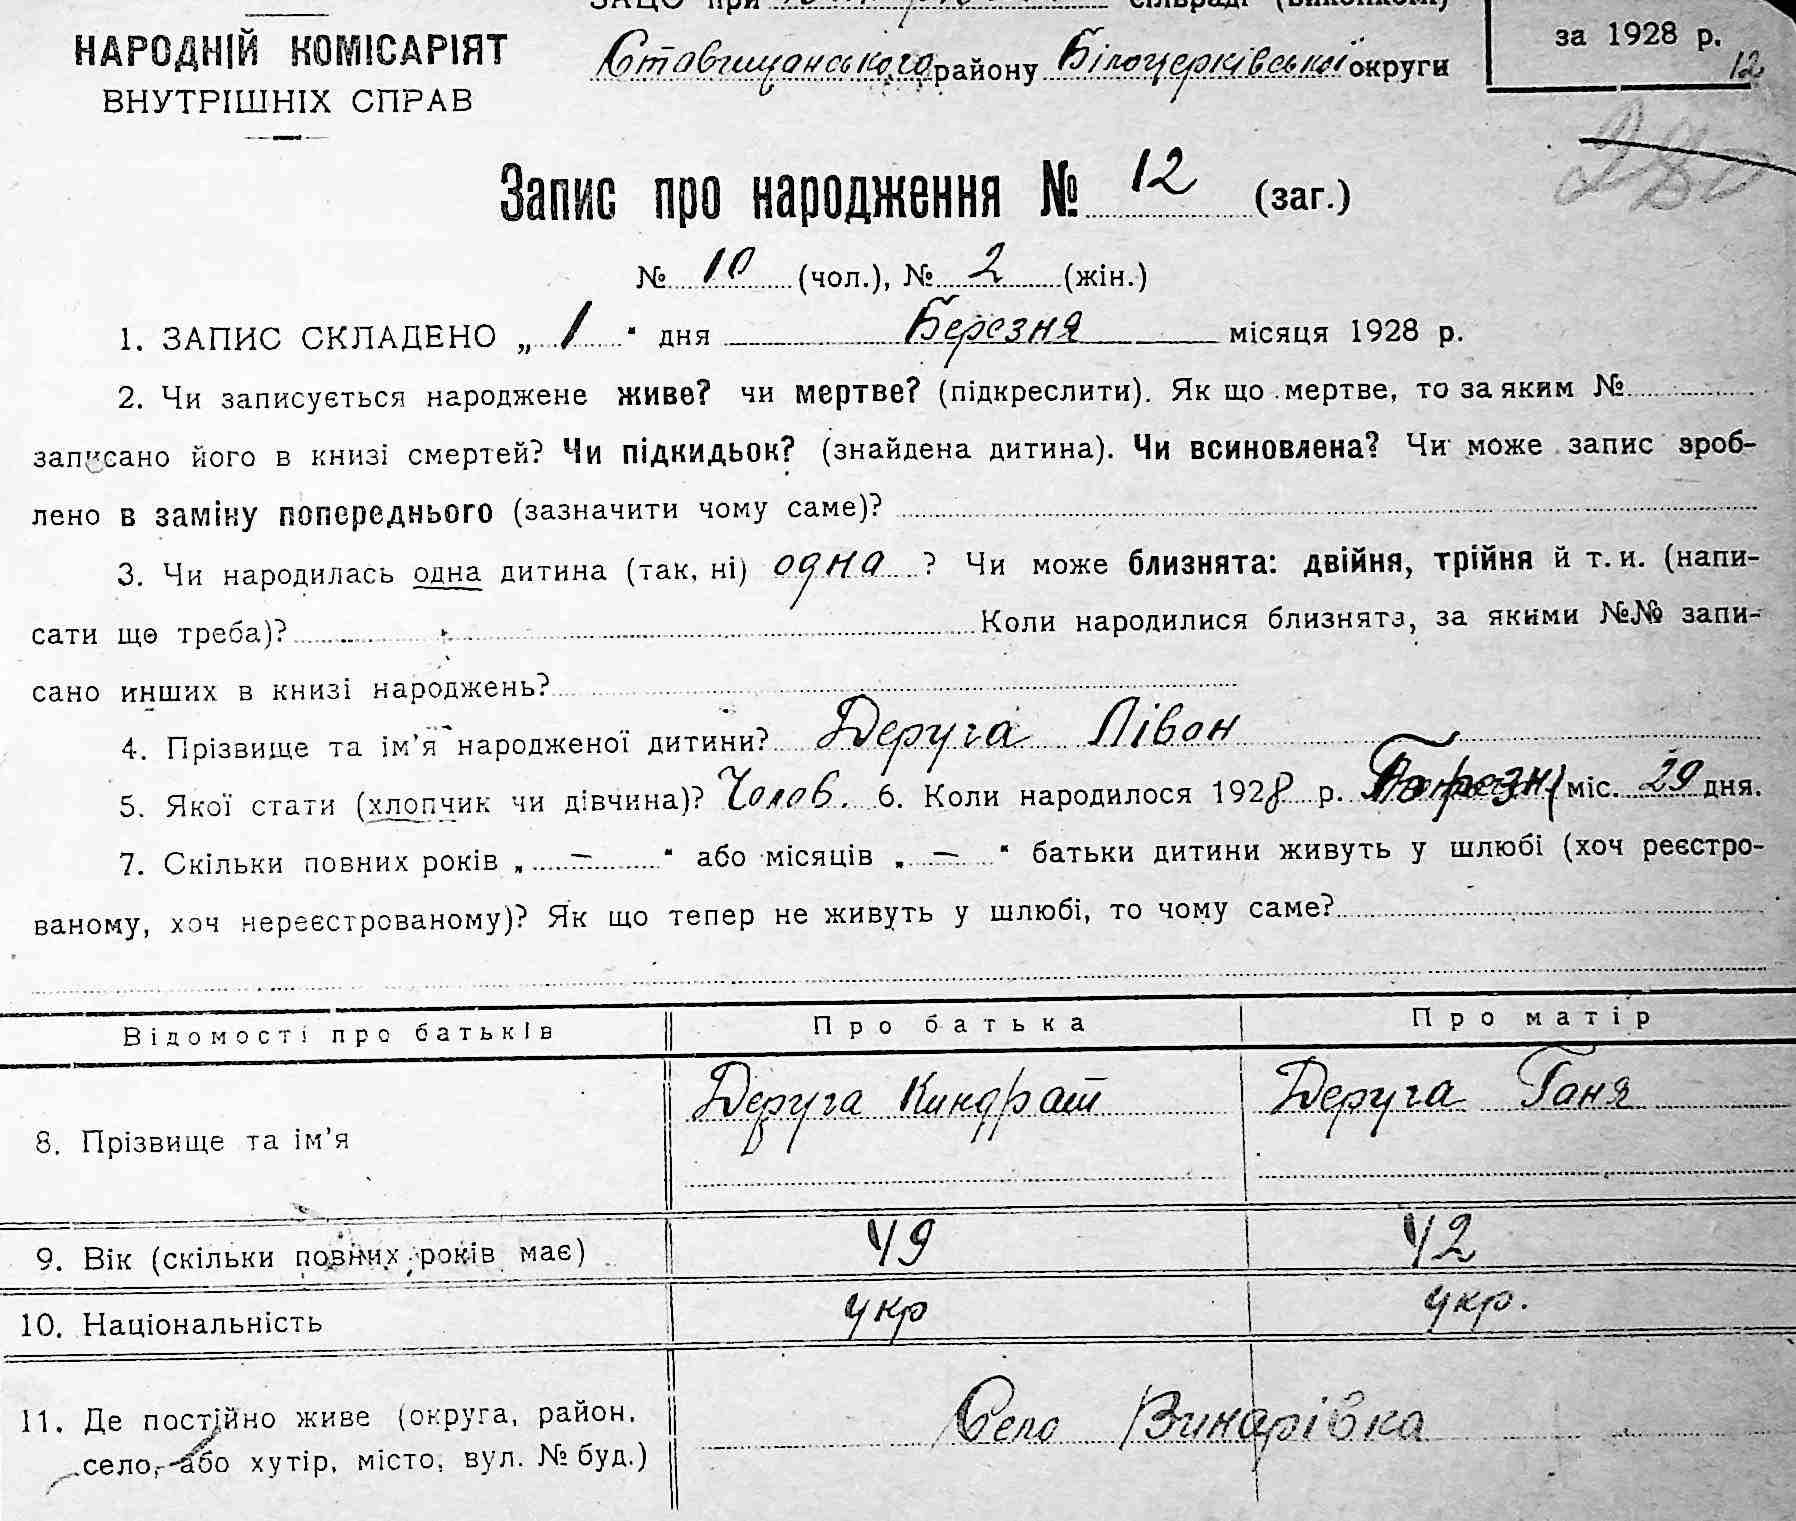 НАРОДНІЙ КОМІСАРІЯТ
ВНУТРІШНІХ СПРАВ
ЗАЦС при сільраді (виконкомі)
Ставищанського району Білоцерківської округи
за 1928 р.
12
280
Запис про народження № 12 (заг.)
№ 10 (чол.), № 2 (жін.)
1. ЗАПИС СКЛАДЕНО „ 1 " дня Березня місяця 1928 р.
2. Чи записується народжене живе? чи мертве? (підкреслити). Як що мертве, то за яким №
записано його в книзі смертей? Чи підкидьок? (знайдена дитина). Чи всиновлена? Чи може запис зроб-
лено в заміну попереднього (зазначити чому саме)?
3. Чи народилась одна дитина (так, ні) одна ? Чи може близнята: двійня, трійня й т. и. (напи-
сати що треба)? Коли народилися близнята, за якими №№ запи-
сано инших в книзі народжень?
4. Прізвище та ім'я народженої дитини? Деруга Лівон
5. Якої стати (хлопчик чи дівчина)? Чолов. 6. Коли народилося 1928 р. міс. 29 дня.
7. Скільки повних років „ — " або місяців „ — " батьки дитини живуть у шлюбі (хоч реєстро-
ваному, хоч нереєстрованому)? Як що тепер не живуть у шлюбі, то чому саме?
Відомості про батьків Про батька Про матір
8. Прізвище та ім'я Деруга Киндрат Деруга Ганя
9. Вік (скільки повних років має) 49 42
10. Національність укр укр.
11. Де постійно живе (округа, район, село, або хутір, місто, вул. № буд.) Село Винарівка